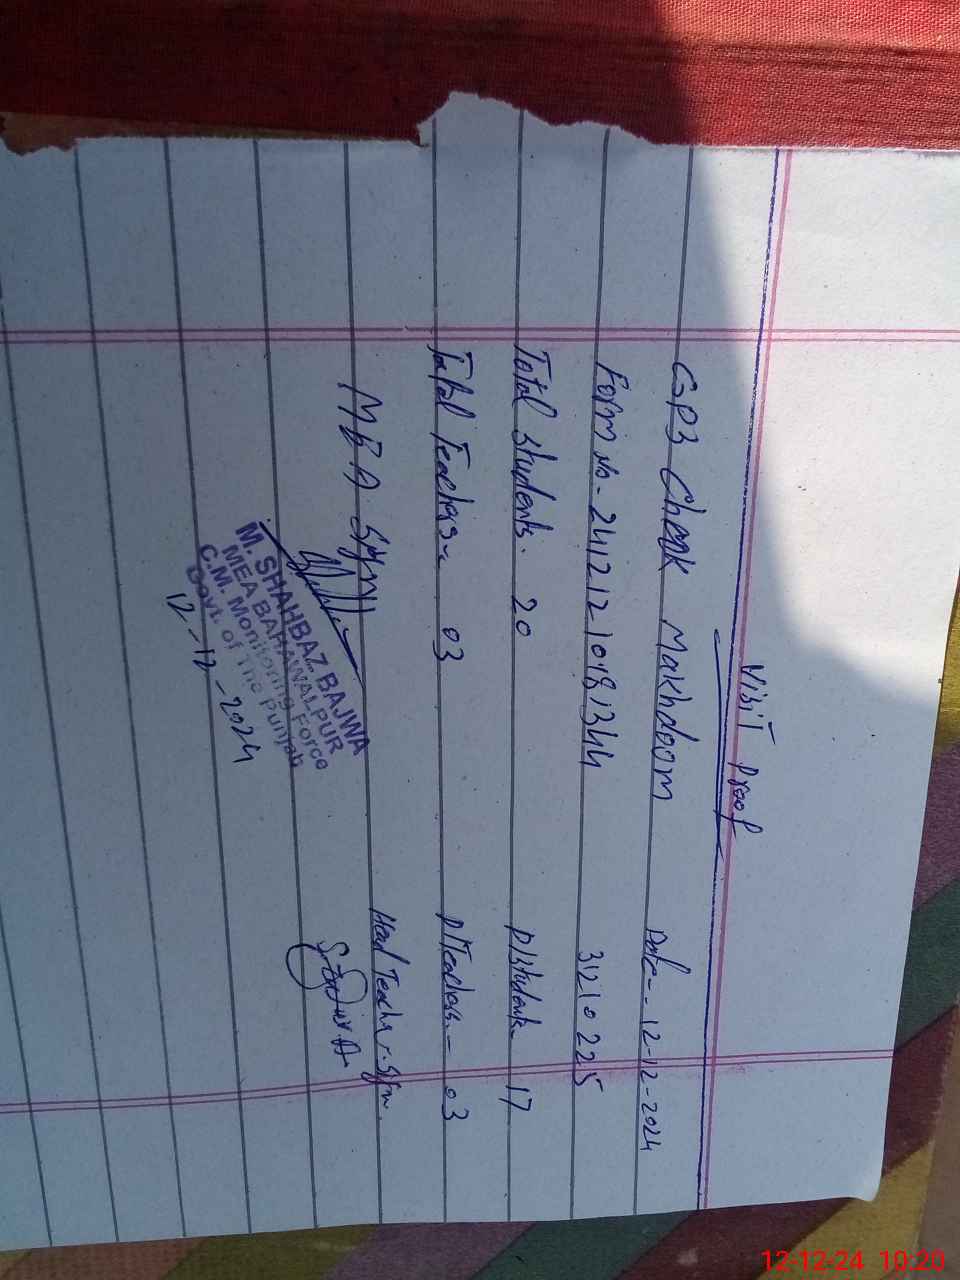 Visit Proof
GPS Chak Makhdoom Date-. 12-12-2024
Form No- 24121210181344 31210225
Total Students. 20 P/Students- 17
Total Teachers- 03 P/Teachers.- 03
MEA Sign Head Teacher. Sign
M. SHAHBAZ BAJWA
MEA BAHAWALPUR
C.M. Monitoring Force
Govt. of The Punjab
12-12-2024
12-12-24 10:20